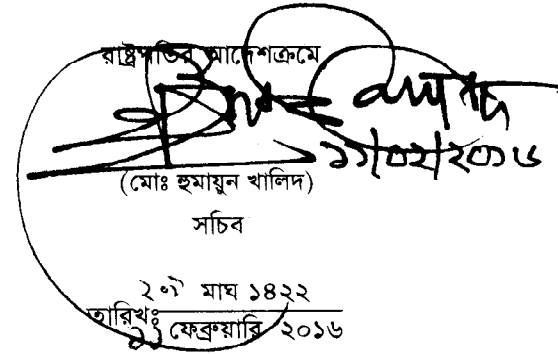 রাষ্ট্রপতির আদেশক্রমে
১১/০২/২০১৬
(মোঃ হুমায়ুন খালিদ)
সচিব
২৯ মাঘ ১৪২২
তারিখঃ
১১ ফেব্রুয়ারি ২০১৬